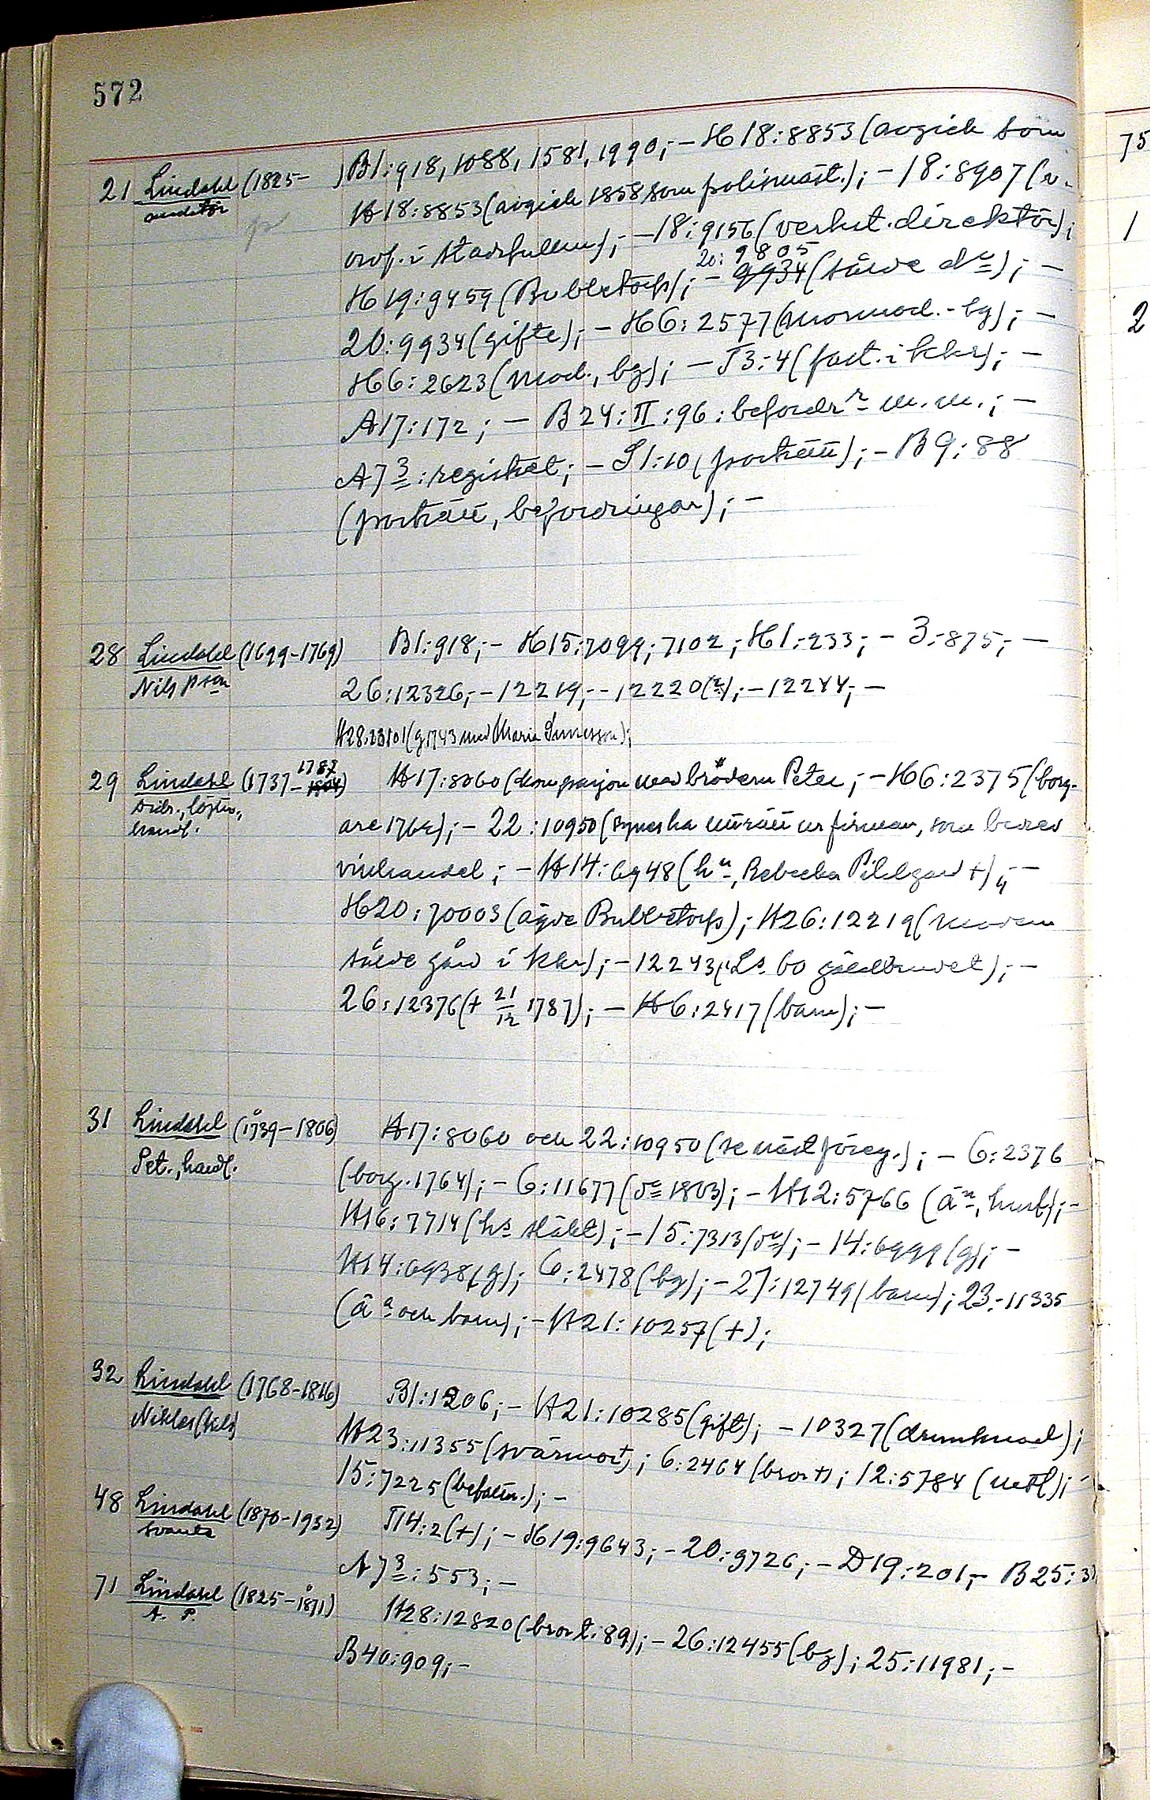 572
21 Lindahl (1825- ) B1:918, 1088, 1581, 1990; - H18:8853 (avgick som
auditör H18:8853 (avgick 1858 som polismäst.); - 18:8907 (v.
ordf. i stadsfullm); - 18:9156 (verkst. direktör);
20: 9805
H19:9459 (Bubbetorp); - 9934 (sålde do); -
20:9934 (gifte); - H6:2577 (mormod. - bg); -
H6:2623 (mod., bg); - J3:4 (fast. i kkr); -
A17:172; - B24:II:96: befordr m.m.; -
A73: registret; - S1:10 (porträtt); - B9:88
(porträtt, befordringar); -
28 Lindahl (1699-1769) B1:918; - H15:7099; 7102; H1:233; - 3:875; -
Nils Pson 26:12326; - 12219; - 12220 (2); - 12244; -
H28:23101 (g 1743 med Maria );
1787
29 Lindahl (1737-1804) H17:8060 (kompanjon med brodern Peter; - H6:2375 (borg-
handl. are 1762); - 22:10950 (synes ha utträtt ur firman, som bedrev
vinhandel; - H14:6948 (hu, Rebecka †);
H20:70003 (ägde Bubbetorp); H26:12219 (modern
sålde gård i kkr); - 12243 (Ls. bo ); -
26:12376 († 21/12 1787); - H6:2417 (barn); -
31 Lindahl (1739-1806) H17:8060 och 22:10950 (se näst föreg.); - 6:2376
Pet., handl. (borg. 1764); - 6:11677 (do 1803); - H12:5766 ; -
H16:7714 (hs släkt); - 15:7313 (do); - 14:6999 (g); -
H14:6938 (g); 6:2478 (bg); - 27:12749 (barn); 23:11335
(äa och barn); - H21:10257 (†);
32 Lindahl (1768-1816) B1:1206; - H21:10285 (gift); - 10327 (drunknad);
Niklas (Nils) H23:11355 (svärmor); 6:2464 (bror †); 12:5784 ;
15:7225 (befäln.); -
48 Lindahl (1870-1932) J14:2 (†); - H19:9643; - 20:9726; - D19:201; - B25:3
Svante A73:553; -
71 Lindahl (1825-1871) H28:12820 (bror t. 89); - 26:12455 (bg); 25:11981; -
A. P. B40:909; -
75
1
2